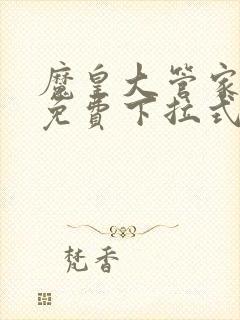 魔皇大管家
免費下拉式
梵香